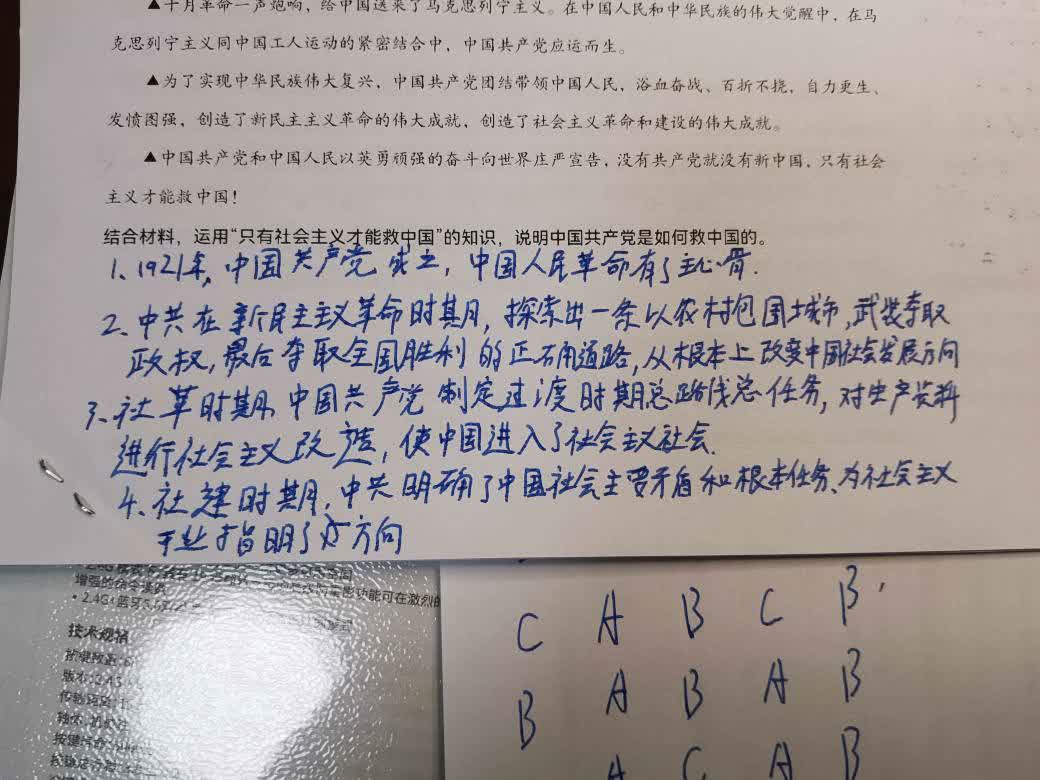 ▲十月革命一声炮响，给中国送来了马克思列宁主义。在中国人民和中华民族的伟大觉醒中，在马
克思列宁主义同中国工人运动的紧密结合中，中国共产党应运而生。
▲为了实现中华民族伟大复兴，中国共产党团结带领中国人民，浴血奋战、百折不挠，自力更生、
发愤图强，创造了新民主主义革命的伟大成就，创造了社会主义革命和建设的伟大成就。
▲中国共产党和中国人民以英勇顽强的奋斗向世界庄严宣告，没有共产党就没有新中国，只有社会
主义才能救中国！
结合材料，运用“只有社会主义才能救中国”的知识，说明中国共产党是如何救中国的。
1、1921年，中国共产党成立，中国人民革命有了主心骨.
2、中共在新民主主义革命时期，探索出一条以农村包围城市，武装夺取
政权，最后夺取全国胜利的正确道路，从根本上改变中国社会发展方向
3、社革时期，中国共产党制定过渡时期总路线总任务，对生产资料
进行社会主义改造，使中国进入了社会主义社会.
4、社建时期，中共明确了中国社会主要矛盾和根本任务、为社会主义
指明了方向
增强的
• 2.4G
功能可在激烈的
技术规格
版本：2.4
C A B C B
B A B A B
A C A B